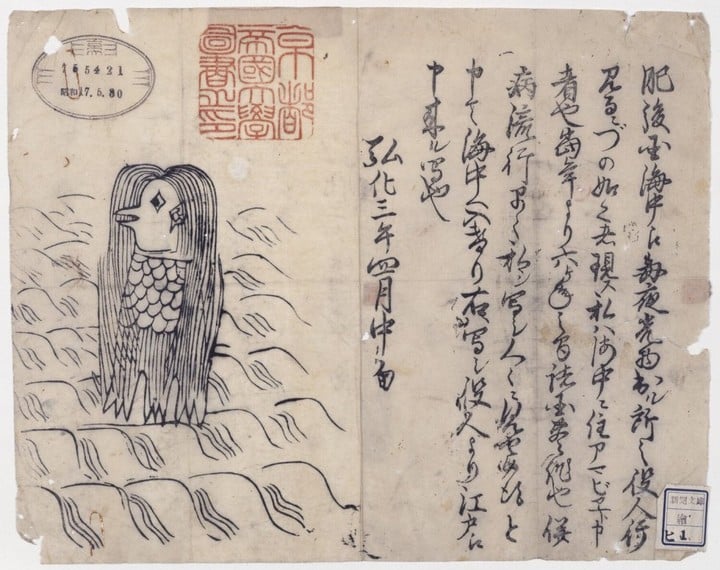 肥後国海中江毎夜光物出ル所之役人行
見るニづの如く之者現ス私ハ海中ニ住アマビヱト申
者也當年より六ヶ年之間諸国豊作也併
病流行早々私ヲ写シ人々ニ見セ候得と
申て海中へ入けり右ハ写シ役人より江戸江
申来ル写也
弘化三年四月中旬
京都
帝國大學
圖書之印
昭和17.5.30
新聞文庫
繪
ヒ 1